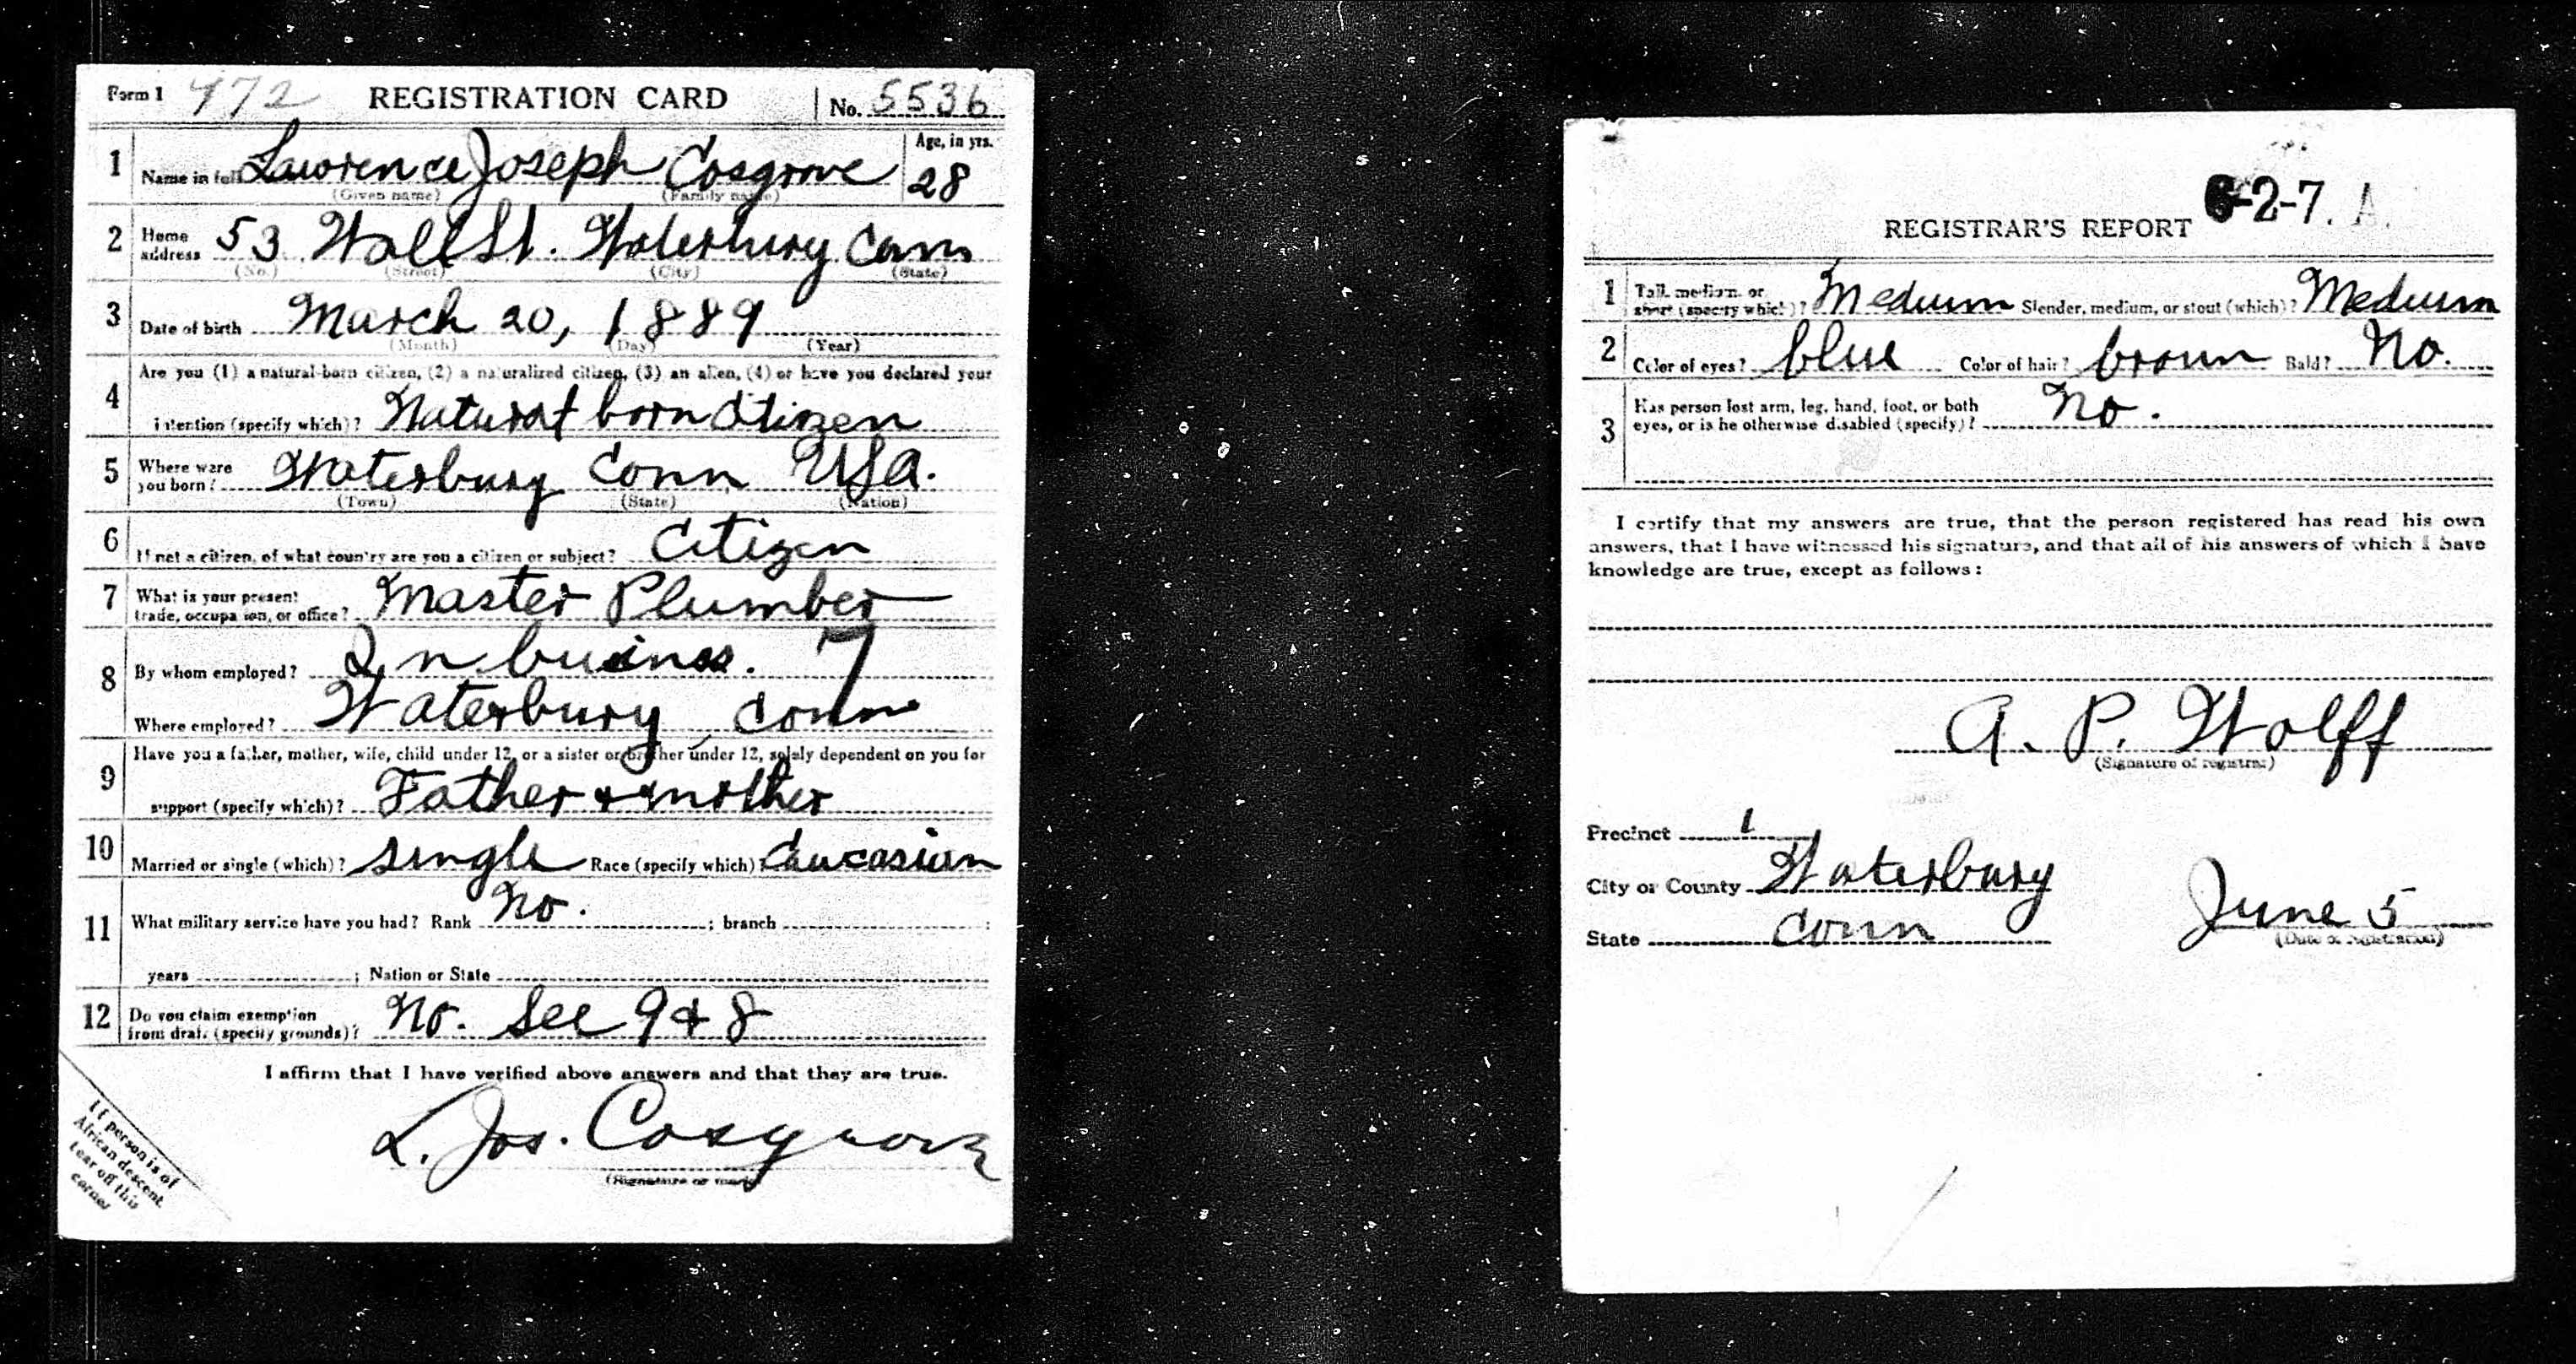 Form 1 472 REGISTRATION CARD No. 5536
1 Name in full Lawrence Joseph Cosgrove Age, in yrs. 28
(Given name) (Family name)
2 Home address 53 Wall St. Waterbury Conn
(No.) (Street) (City) (State)
3 Date of birth March 20, 1889
(Month) (Day) (Year)
4 Are you (1) a natural-born citizen, (2) a naturalized citizen, (3) an alien, (4) or have you declared your
intention (specify which)? Natural born Citizen
5 Where were you born? Waterbury Conn USA.
(Town) (State) (Nation)
6 If not a citizen, of what country are you a citizen or subject? Citizen
7 What is your present trade, occupation, or office? Master Plumber
8 By whom employed? In business. 7
Where employed? Waterbury, Conn
9 Have you a father, mother, wife, child under 12, or a sister or brother under 12, solely dependent on you for
support (specify which)? Father & mother
10 Married or single (which)? single Race (specify which) Caucasian
11 What military service have you had? Rank No. ; branch ;
years ; Nation or State
12 Do you claim exemption from draft (specify grounds)? No. See 9 & 8
I affirm that I have verified above answers and that they are true.
L. Jos. Cosgrove
(Signature or mark)
If person is of
African descent,
tear off this
corner
6-2-7. A.
REGISTRAR'S REPORT
1 Tall, medium, or short (specify which)? Medium Slender, medium, or stout (which)? Medium
2 Color of eyes? blue Color of hair? brown Bald? No.
3 Has person lost arm, leg, hand, foot, or both
eyes, or is he otherwise disabled (specify)? No.
I certify that my answers are true, that the person registered has read his own
answers, that I have witnessed his signature, and that all of his answers of which I have
knowledge are true, except as follows:
A. P. Wolff
(Signature of registrar)
Precinct 1
City or County Waterbury
State Conn June 5
(Date of registration)